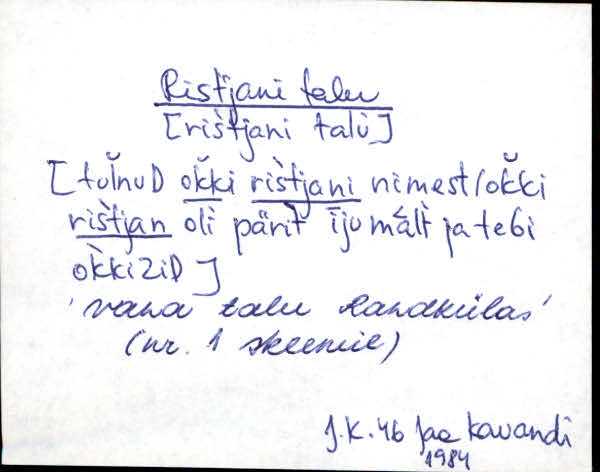 Ristjani talu
[rìšt́jani talù]
[tulnuD okki rìšt́jani nimest/okki
rìšt́jan oli pärit ījumàlt ja tebi
okkiziD]
'vana talu Randkülas'
(nr. 1 skeemil)
J.K. 46 Jaa Kavandi
1984